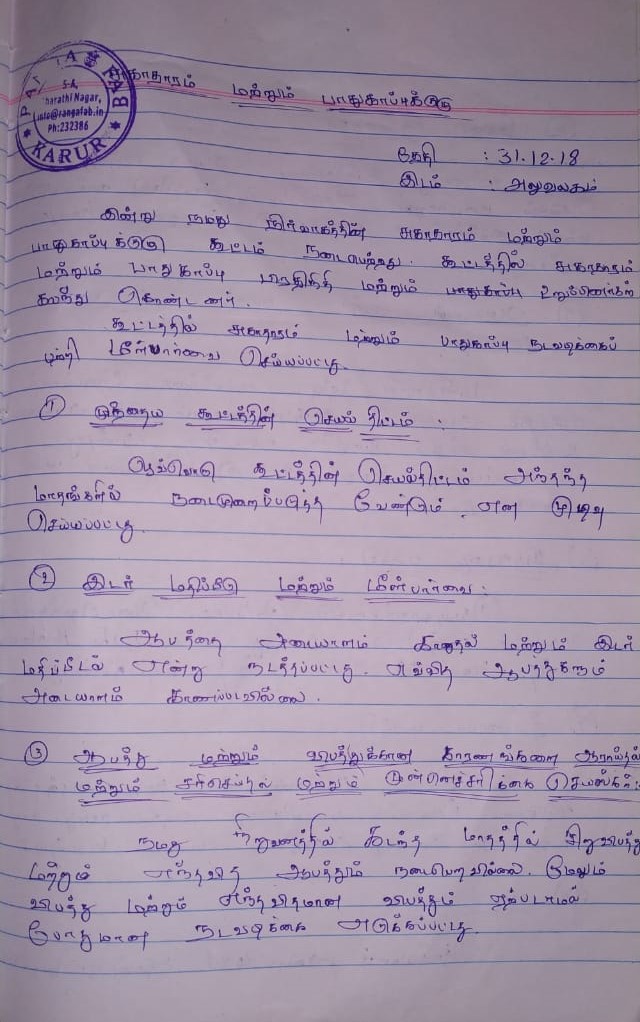 S-A,
harathi Nagar,
info@rangafab.in
Ph:232386
KARUR
சுகாதாரம் மற்றும் பாதுகாப்புக்குழு
தேதி : 31-12-18
இடம் : அலுவலகம்
இன்று நமது நிர்வாகத்தின் சுகாதாரம் மற்றும்
பாதுகாப்புக்குழு கூட்டம் நடைபெற்றது. கூட்டத்தில் சுகாதாரம்
மற்றும் பாதுகாப்பு பிரதிநிதி மற்றும் பாதுகாப்பு உறுப்பினர்கள்
கலந்து கொண்டனர்.
கூட்டத்தில் சுகாதாரம் மற்றும் பாதுகாப்பு நடவடிக்கைப்
பற்றி மீள்பார்வை செய்யப்பட்டது.
① முந்தைய கூட்டத்தின் செயல் திட்டம் :
ஒவ்வொரு கூட்டத்தின் செயல்திட்டம் அந்தந்த
மாதங்களில் நடைமுறைப்படுத்த வேண்டும் என முடிவு
செய்யப்பட்டது.
② இடர் மதிப்பீடு மற்றும் மீள்பார்வை :
ஆபத்தை அடையாளம் காணுதல் மற்றும் இடர்
மதிப்பீடல் என்று நடத்தப்பட்டது. எவ்வித ஆபத்துகளும்
அடையாளம் காணப்படவில்லை.
③ ஆபத்து மற்றும் விபத்துக்கான காரணங்களை ஆராய்தல்
மற்றும் சரிசெய்தல் மற்றும் முன்னெச்சரிக்கை செயல்கள் :
நமது நிறுவனத்தில் கடந்த மாதத்தில் சிறுவிபத்து
மற்றும் எந்தவித ஆபத்தும் நடைபெறவில்லை. மேலும்
விபத்து மற்றும் எந்தவிதமான விபத்தும் ஏற்படாமல்
போதுமான நடவடிக்கை எடுக்கப்பட்டது.